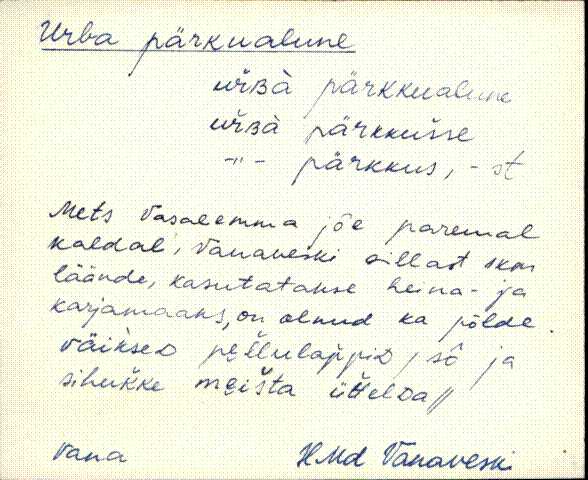 Urba pärkualune
uřʙà pärkkualune
uřʙà pärkkušse
-"- pärkkus, -st
Mets Vasalemma jõe paremal
kaldal, Vanaveski sillast 1km
läände, kasutatakse heina- ja
karjamaaks, on olnud ka põlde.
väikseᴅ pellulappiᴅ, sô ja
sihukke meišta üttelᴅa //
Vana HMd Vanaveski